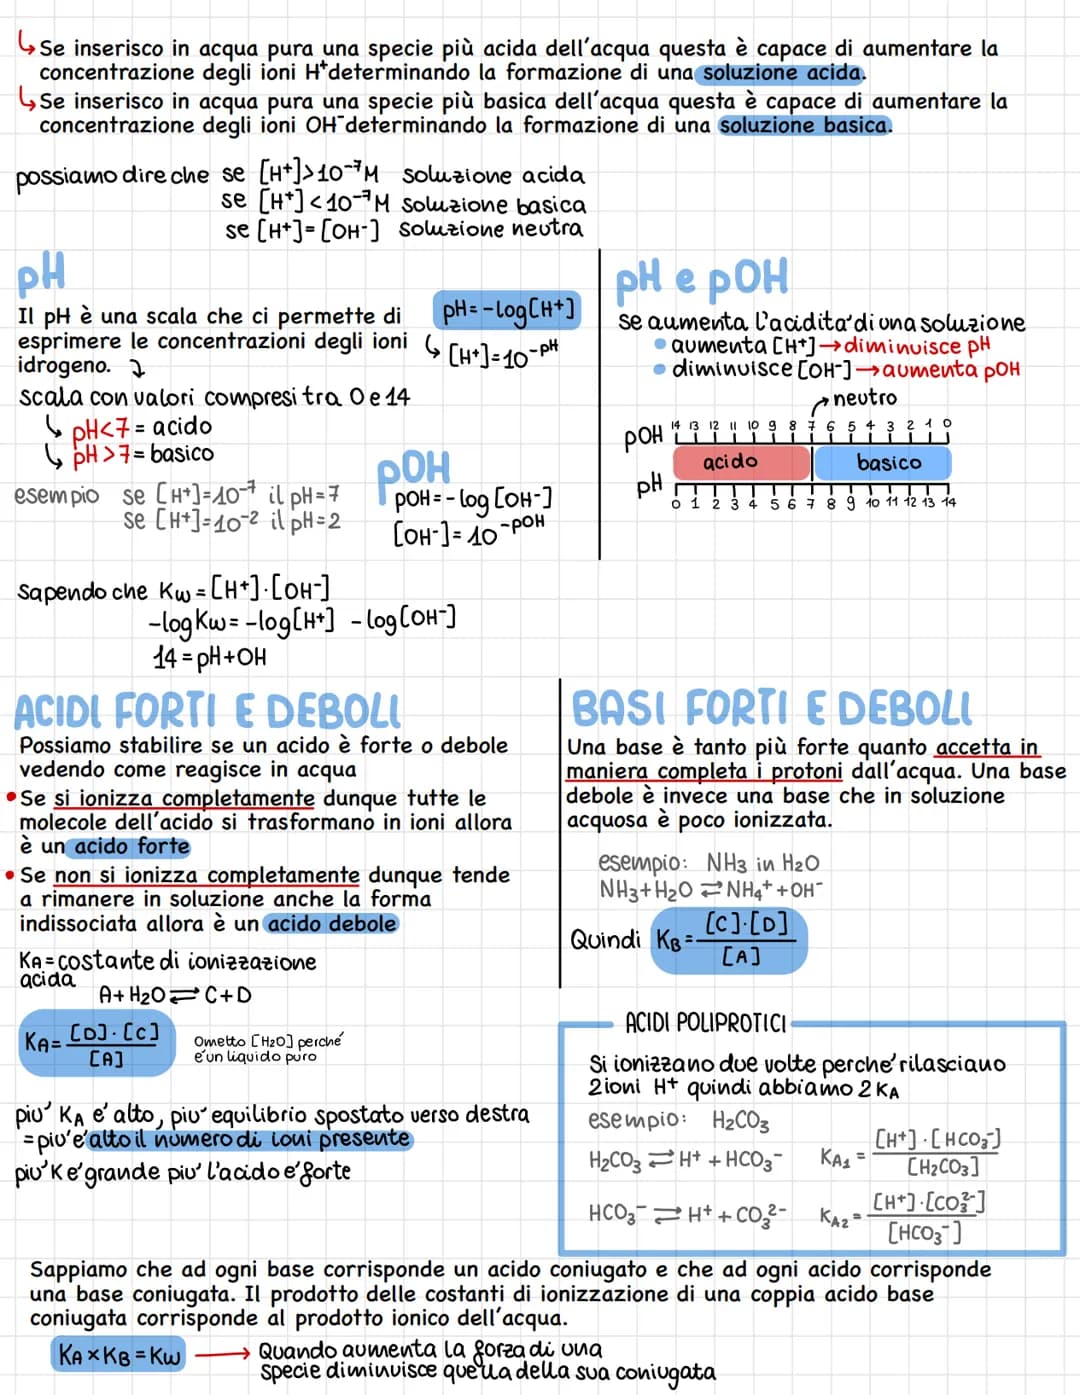 ↳ Se inserisco in acqua pura una specie più acida dell'acqua questa è capace di aumentare la
concentrazione degli ioni H⁺ determinando la formazione di una soluzione acida.
↳ Se inserisco in acqua pura una specie più basica dell'acqua questa è capace di aumentare la
concentrazione degli ioni OH⁻ determinando la formazione di una soluzione basica.
possiamo dire che se [H⁺]>10⁻⁷M soluzione acida
se [H⁺]<10⁻⁷M soluzione basica
se [H⁺]=[OH⁻] soluzione neutra
pH
Il pH è una scala che ci permette di
esprimere le concentrazioni degli ioni
idrogeno.
pH=-log[H⁺]
↳ [H⁺]=10^-pH
scala con valori compresi tra 0 e 14
↳ pH<7= acido
↳ pH>7= basico
esempio se [H⁺]=10⁻⁷ il pH=7
se [H⁺]=10⁻² il pH=2
pOH
pOH=-log [OH⁻]
[OH⁻]=10^-pOH
pH e pOH
se aumenta l'acidita' di una soluzione
• aumenta [H⁺]→diminuisce pH
• diminuisce [OH⁻]→aumenta pOH
neutro
pOH 14 13 12 11 10 9 8 7 6 5 4 3 2 1 0
acido basico
pH
0 1 2 3 4 5 6 7 8 9 10 11 12 13 14
Sapendo che Kw=[H⁺]·[OH⁻]
-logKw=-log[H⁺] -log[OH⁻]
14=pH+OH
ACIDI FORTI E DEBOLI
Possiamo stabilire se un acido è forte o debole
vedendo come reagisce in acqua
• Se si ionizza completamente dunque tutte le
molecole dell'acido si trasformano in ioni allora
è un acido forte
• Se non si ionizza completamente dunque tende
a rimanere in soluzione anche la forma
indissociata allora è un acido debole
KA=costante di ionizzazione
acida
A+H₂O⇌C+D
KA= [D]·[C]
[A]
Ometto [H₂O] perché
e' un liquido puro
piu' KA e' alto, piu' equilibrio spostato verso destra
=piu' e' alto il numero di ioni presente
piu' K e' grande piu' l'acido e' forte
BASI FORTI E DEBOLI
Una base è tanto più forte quanto accetta in
maniera completa i protoni dall'acqua. Una base
debole è invece una base che in soluzione
acquosa è poco ionizzata.
esempio: NH3 in H₂O
NH3+H₂O⇌NH₄⁺+OH⁻
Quindi KB= [C]·[D]
[A]
ACIDI POLIPROTICI
Si ionizzano due volte perche' rilasciano
2 ioni H+ quindi abbiamo 2 KA
esempio: H₂CO₃
H₂CO₃⇌H⁺+HCO₃⁻ KA₁ = [H⁺]·[HCO₃⁻]
[H₂CO₃]
HCO₃⁻⇌H⁺+CO₃²⁻ KA₂ = [H⁺]·[CO₃²⁻]
[HCO₃⁻]
Sappiamo che ad ogni base corrisponde un acido coniugato e che ad ogni acido corrisponde
una base coniugata. Il prodotto delle costanti di ionizzazione di una coppia acido base
coniugata corrisponde al prodotto ionico dell'acqua.
KA×KB=Kw → Quando aumenta la forza di una
specie diminuisce quella della sua coniugata